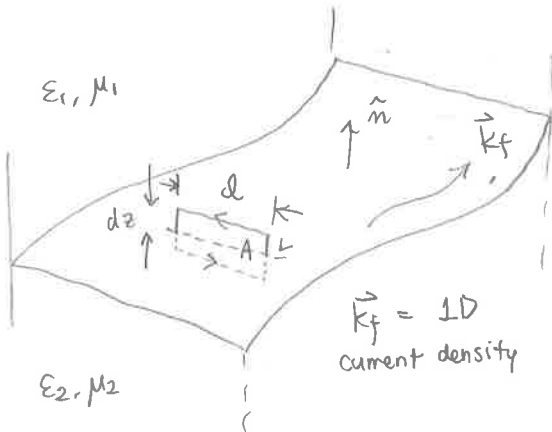 ε₁, μ₁
n̂
k⃗f
l
dz
A
L
k⃗f = 1D
current density
ε₂, μ₂